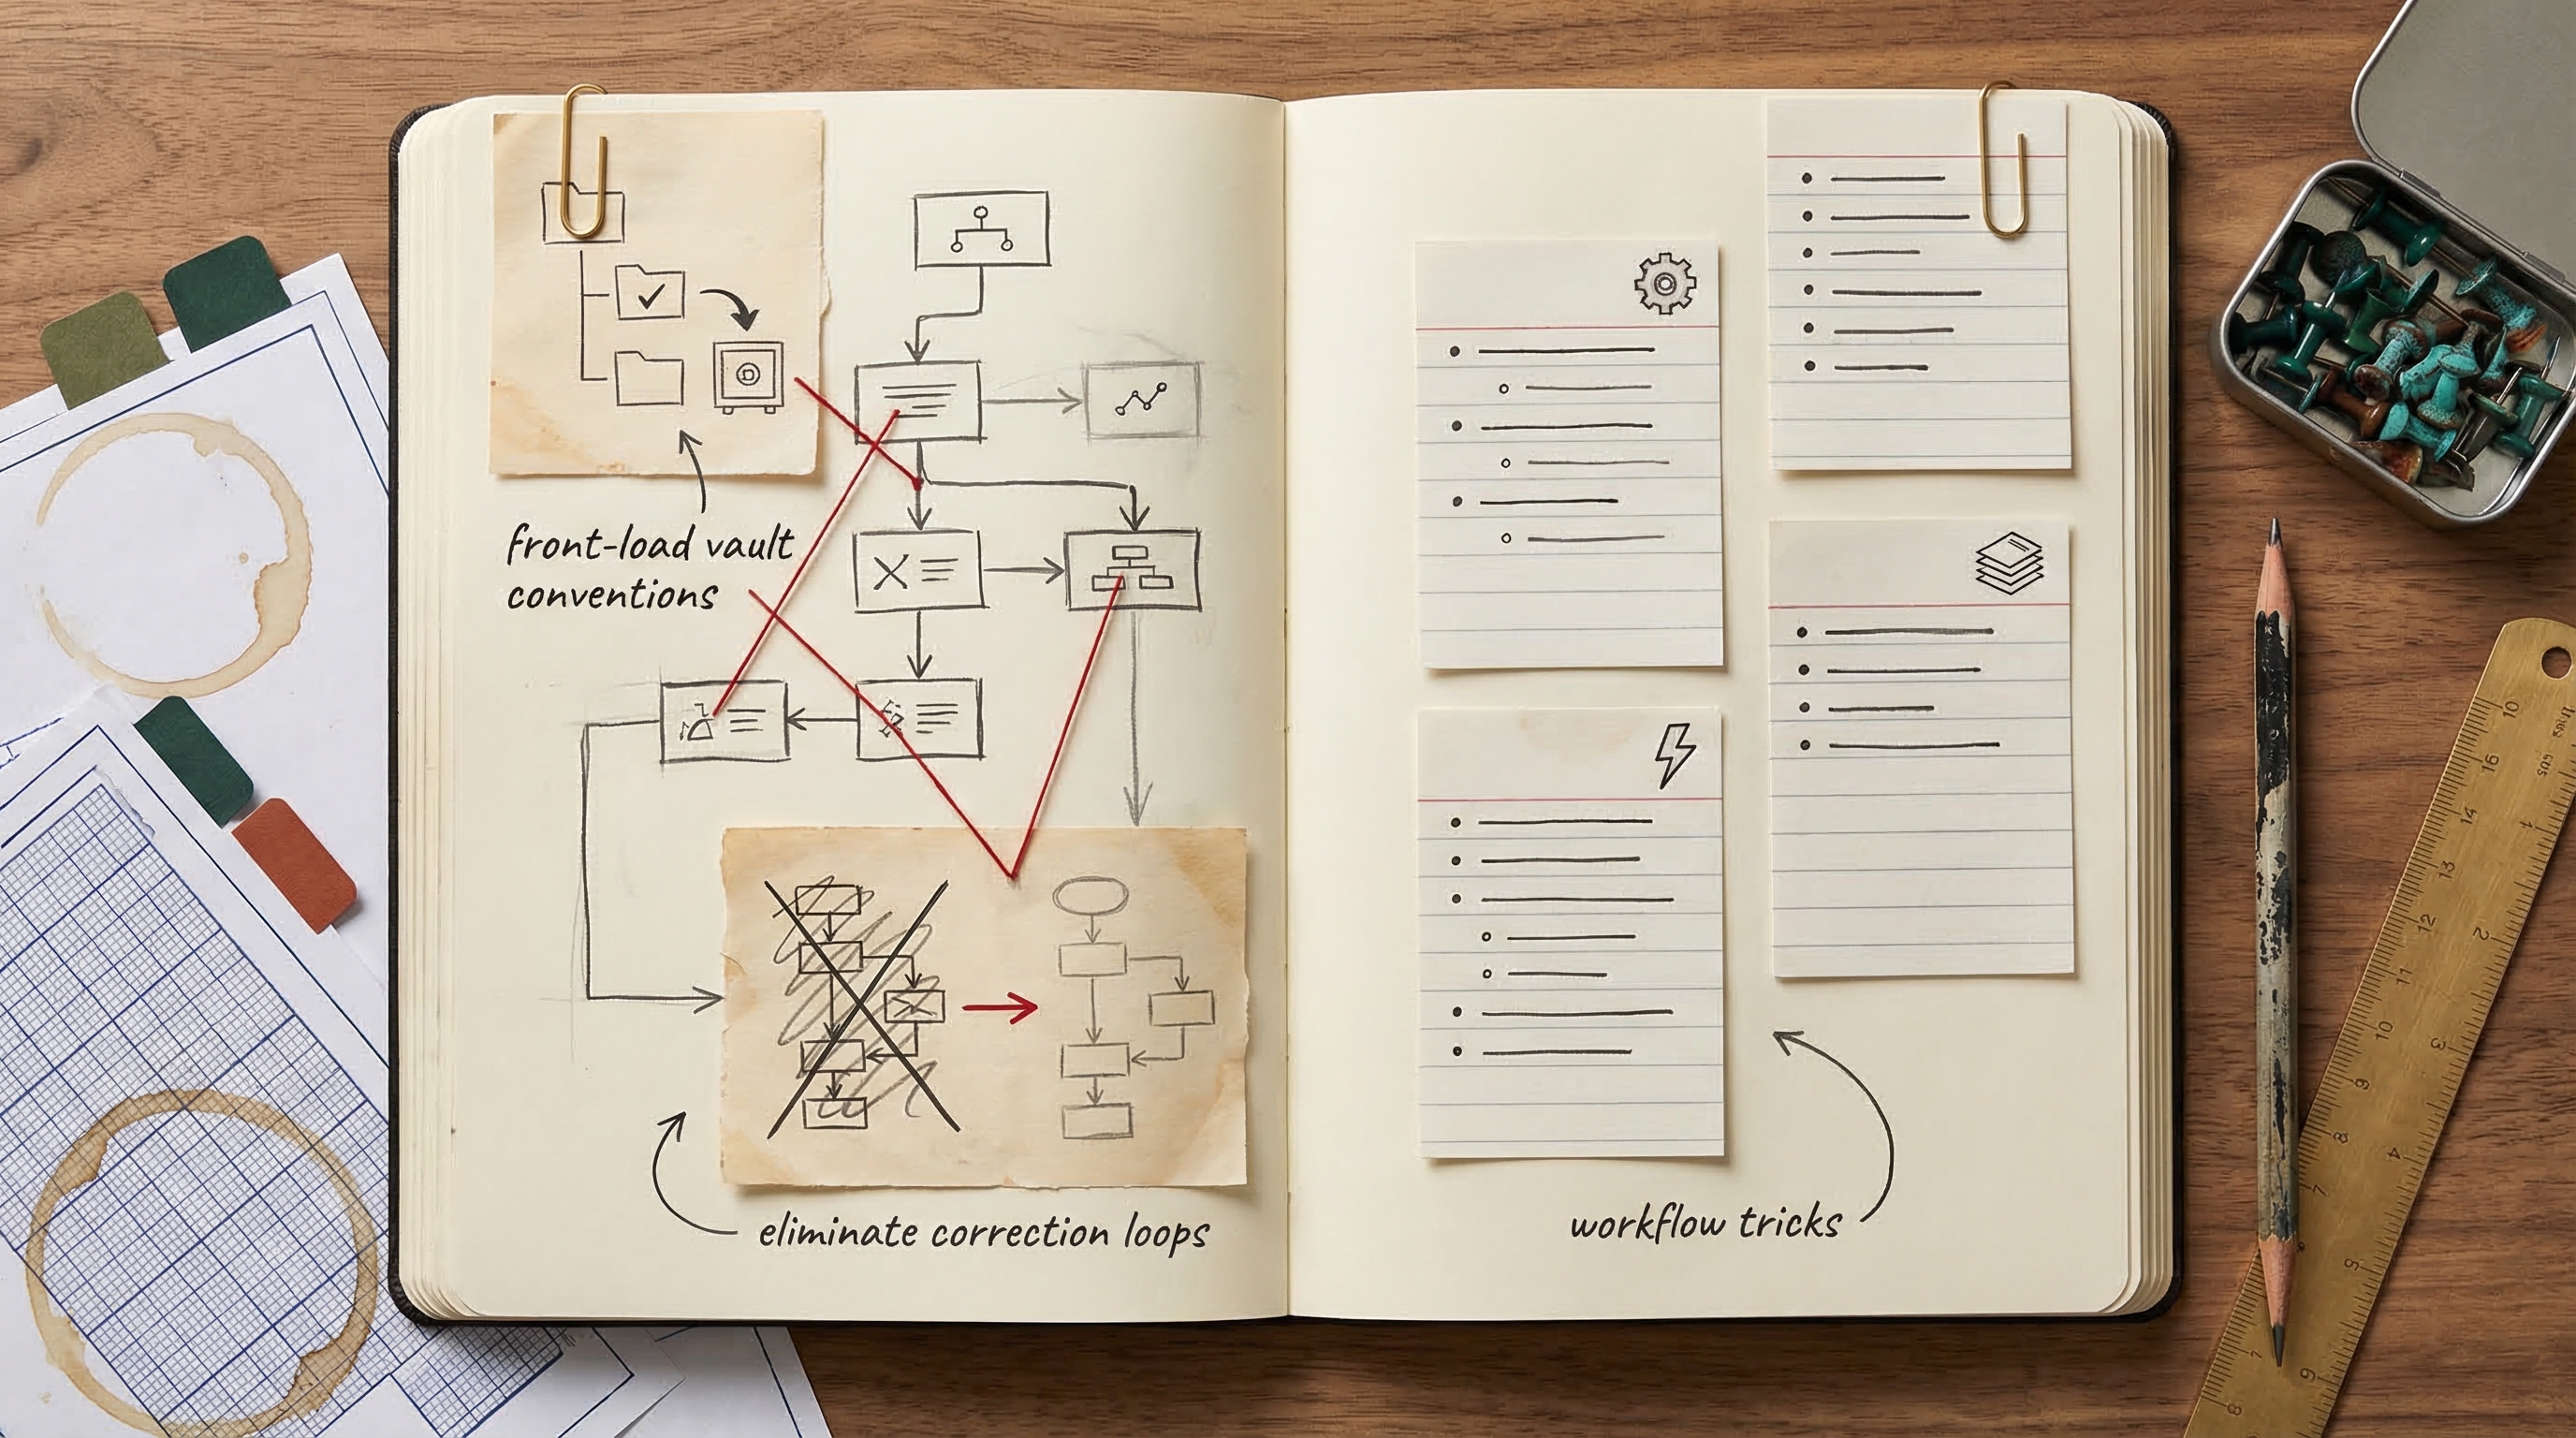 front-load vault
conventions
eliminate correction loops
workflow tricks